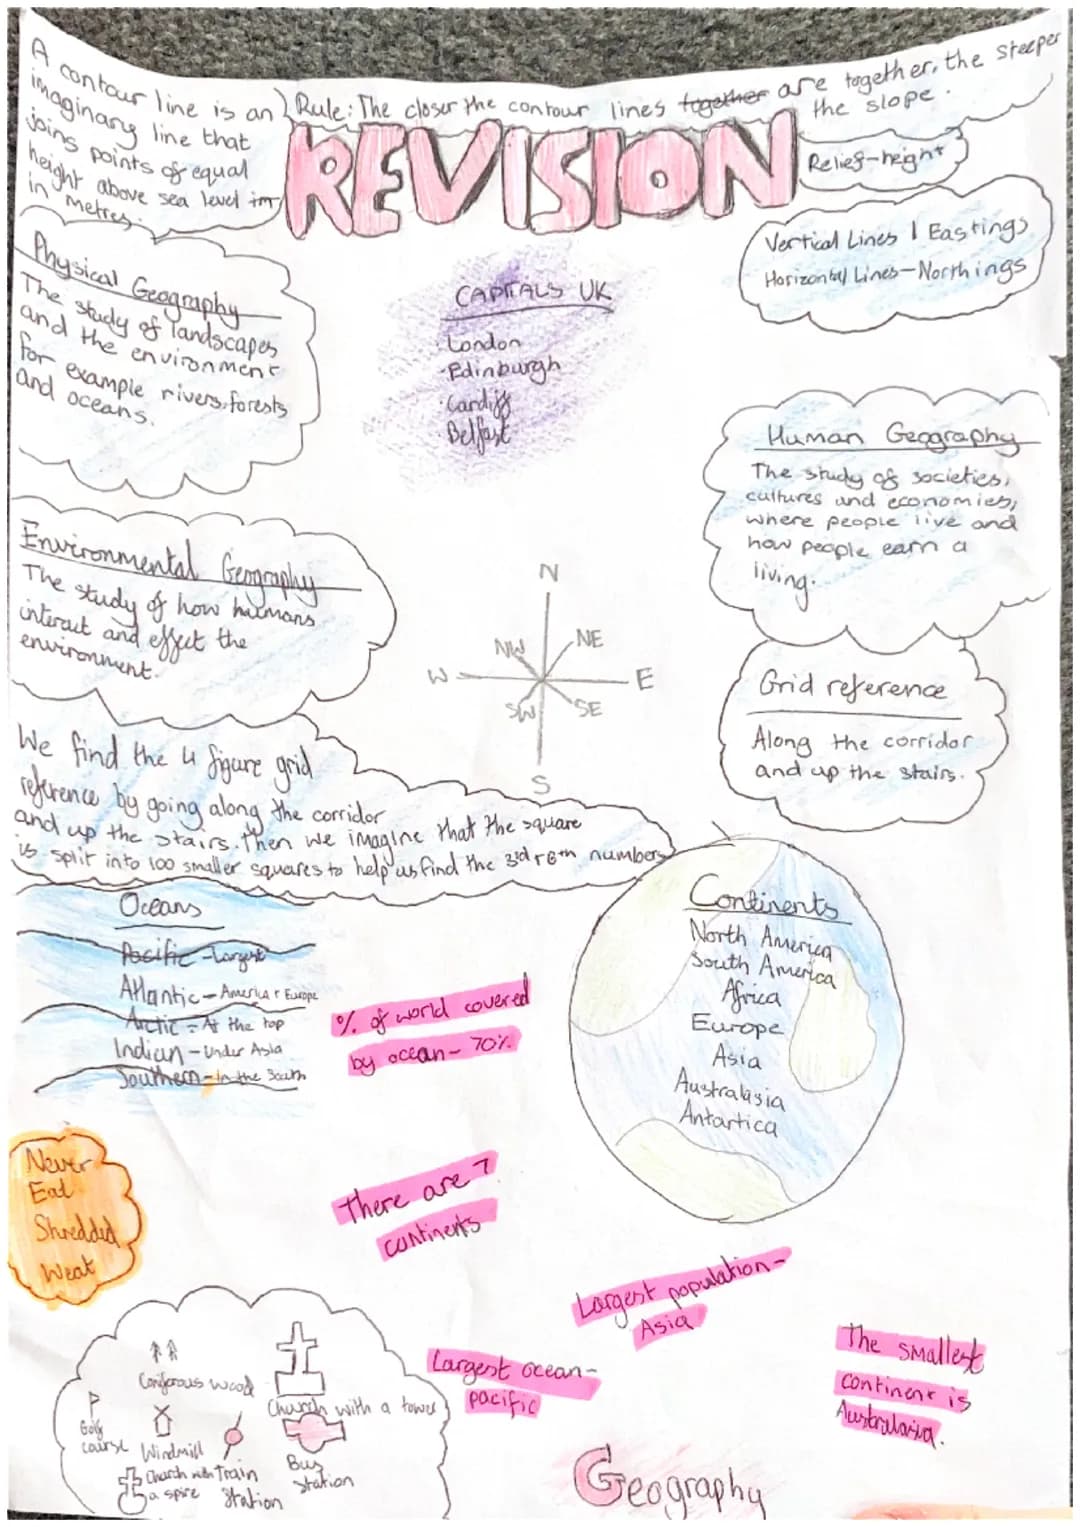 A contour line is an
imaginary line that
joins points of equal
height above sea level im
in Metres.
Rule: The closer the contour lines together are together, the steeper
the slope.
REVISION
Relief-height
Vertical Lines | Eastings
Horizontal Lines - Northings
Physical Geography
The study of landscapes
and the environment
for example rivers, forests
and oceans.
CAPITALS UK
London
·Edinburgh
·Cardiff
·Belfast
Human Geography
The study of societies,
cultures and economies,
where people live and
how people earn a
living.
Environmental Geography
The study of how humans
interact and effect the
environment.
N
NW
NE
W
E
SW
SE
S
Grid reference
Along the corridor
and up the stairs.
We find the 4 figure grid
reference by going along the corridor
and up the stairs. Then we imagine that the square
is split into 100 smaller squares to help us find the 3rd + 6th numbers
Oceans
Pacific - Largest
Atlantic - America + Europe
Arctic - At the top
Indian - Under Asia
Southern - In the South
% of world covered
by ocean - 70%
Continents
North America
South America
Africa
Europe
Asia
Australasia
Antartica
Never
Eat
Shredded
Weat
There are 7
continents
Largest population -
Asia
Largest ocean -
pacific
The smallest
continent is
Australasia.
Coniforous wood
Church with a tower
Golf
course
Windmill
Church with
a spire
Train
Station
Bus
Station
Geography